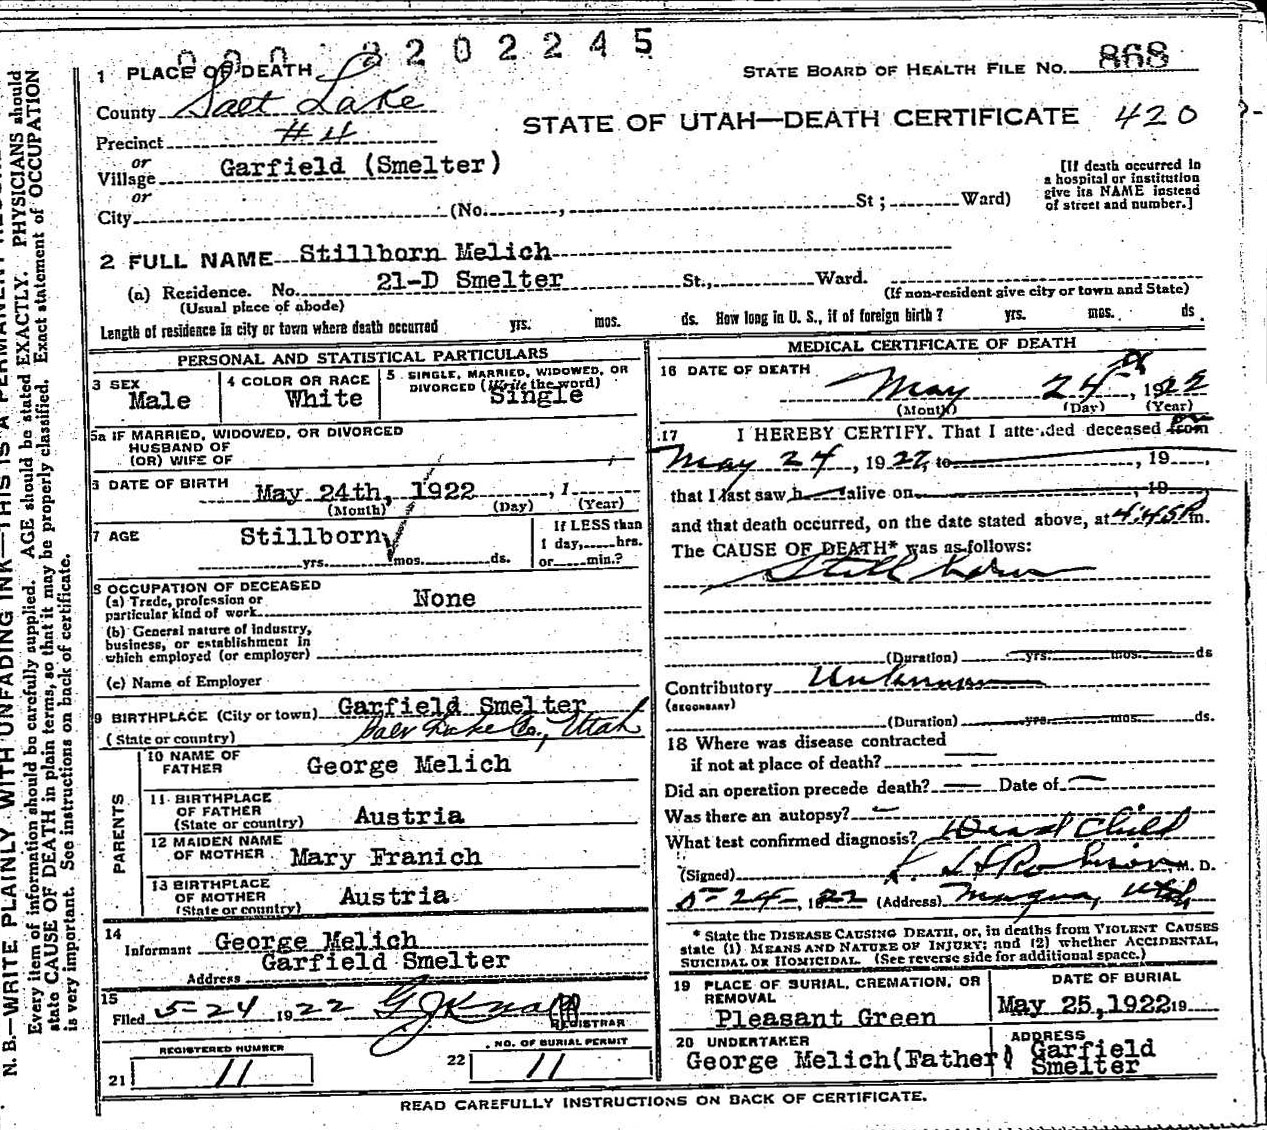 2202245
1 PLACE OF DEATH
STATE BOARD OF HEALTH FILE NO. 868
County Salt Lake
STATE OF UTAH—DEATH CERTIFICATE 420
Precinct #4
or
Village Garfield (Smelter)
or
City (No. , St; Ward)
[If death occurred in
a hospital or institution
give its NAME instead
of street and number.]
2 FULL NAME Stillborn Melich
(a) Residence. No. 21-D Smelter St., Ward.
(Usual place of abode) (If non-resident give city or town and State)
Length of residence in city or town where death occurred yrs. mos. ds. How long in U. S., if of foreign birth? yrs. mos. ds.
PERSONAL AND STATISTICAL PARTICULARS
3 SEX Male
4 COLOR OR RACE White
5 SINGLE, MARRIED, WIDOWED, OR
DIVORCED (Write the word)
Single
5a IF MARRIED, WIDOWED, OR DIVORCED
HUSBAND OF
(OR) WIFE OF
DATE OF BIRTH May 24th, 1922 , 1
(Month) (Day) (Year)
7 AGE Stillborn
yrs. mos. ds.
If LESS than
1 day, hrs.
or min.?
8 OCCUPATION OF DECEASED
(a) Trade, profession or
particular kind of work None
(b) General nature of industry,
business, or establishment in
which employed (or employer)
(c) Name of Employer
9 BIRTHPLACE (City or town) Garfield Smelter
(State or country) Salt Lake Co., Utah
PARENTS
10 NAME OF
FATHER George Melich
11 BIRTHPLACE
OF FATHER
(State or country) Austria
12 MAIDEN NAME
OF MOTHER Mary Franich
13 BIRTHPLACE
OF MOTHER
(State or country) Austria
14
Informant George Melich
Address Garfield Smelter
15
Filed 5-24 1922
REGISTRAR
REGISTERED NUMBER
21 11
NO. OF BURIAL PERMIT
22 11
MEDICAL CERTIFICATE OF DEATH
16 DATE OF DEATH
May 24th, 1922
(Month) (Day) (Year)
17 I HEREBY CERTIFY. That I attended deceased from on
May 24, 1922, to , 19 ,
that I last saw h alive on , 19
and that death occurred, on the date stated above, at 4:45P m.
The CAUSE OF DEATH* was as follows:
Still born
(Duration) yrs. mos. ds
Contributory Unknown
(SECONDARY)
(Duration) yrs. mos. ds.
18 Where was disease contracted
if not at place of death?
Did an operation precede death? Date of
Was there an autopsy?
What test confirmed diagnosis? Dead Child
(Signed) Robinson M. D.
5-24-, 1922 (Address) Magna, Utah
* State the DISEASE CAUSING DEATH, or, in deaths from VIOLENT CAUSES
state (1) MEANS AND NATURE OF INJURY; and (2) whether ACCIDENTAL,
SUICIDAL OR HOMICIDAL. (See reverse side for additional space.)
19 PLACE OF BURIAL, CREMATION, OR
REMOVAL
Pleasant Green
DATE OF BURIAL
May 25, 1922 19
20 UNDERTAKER
George Melich (Father)
ADDRESS
Garfield
Smelter
READ CAREFULLY INSTRUCTIONS ON BACK OF CERTIFICATE.
N. B.—WRITE PLAINLY WITH UNFADING INK—THIS IS A PERMANENT
Every item of information should be carefully supplied. AGE should be stated EXACTLY. PHYSICIANS should
state CAUSE OF DEATH in plain terms, so that it may be properly classified. Exact statement of OCCUPATION
is very important. See instructions on back of certificate.